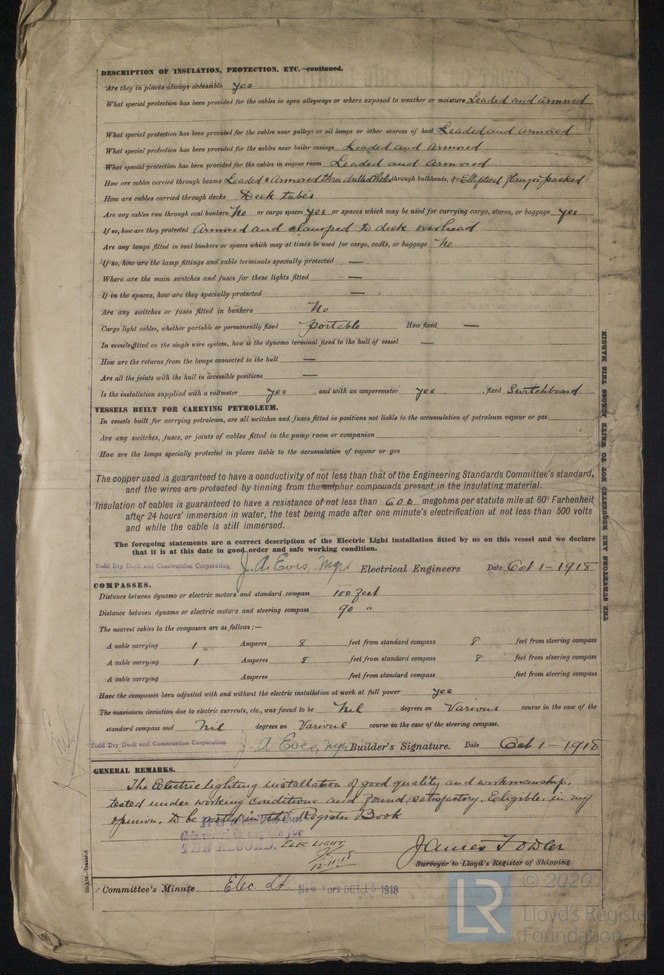 DESCRIPTION OF INSULATION, PROTECTION, ETC.—continued.
Are they in places always accessible yes
What special protection has been provided for the cables in open alleyways or where exposed to weather or moisture Leaded and armored
What special protection has been provided for the cables near galleys or oil lamps or other sources of heat Leaded and armored
What special protection has been provided for the cables near boiler casings Leaded and Armored
What special protection has been provided for the cables in engine room Leaded and Armored
How are cables carried through beams Leaded & Armored thru drilled holes through bulkheads, &c. Elliptical flanges packed
How are cables carried through decks Deck tubes
Are any cables run through coal bunkers No or cargo spaces yes or spaces which may be used for carrying cargo, stores, or baggage yes
If so, how are they protected Armored and clamped to deck overhead
Are any lamps fitted in coal bunkers or spaces which may at times be used for cargo, coals, or baggage No
If so, how are the lamp fittings and cable terminals specially protected —
Where are the main switches and fuses for these lights fitted —
If in the spaces, how are they specially protected —
Are any switches or fuses fitted in bunkers No
Cargo light cables, whether portable or permanently fixed portable How fixed —
In vessels fitted on the single wire system, how is the dynamo terminal fixed to the hull of vessel —
How are the returns from the lamps connected to the hull —
Are all the joints with the hull in accessible positions —
Is the installation supplied with a voltmeter yes , and with an amperemeter yes , fixed Switchboard
VESSELS BUILT FOR CARRYING PETROLEUM.
In vessels built for carrying petroleum, are all switches and fuses fitted in positions not liable to the accumulation of petroleum vapour or gas
Are any switches, fuses, or joints of cables fitted in the pump room or companion
How are the lamps specially protected in places liable to the accumulation of vapour or gas
The copper used is guaranteed to have a conductivity of not less than that of the Engineering Standards Committee's standard,
and the wires are protected by tinning from the sulphur compounds present in the insulating material.
Insulation of cables is guaranteed to have a resistance of not less than 600 megohms per statute mile at 60° Farhenheit
after 24 hours' immersion in water, the test being made after one minute's electrification at not less than 500 volts
and while the cable is still immersed.
The foregoing statements are a correct description of the Electric Light installation fitted by us on this vessel and we declare
that it is at this date in good order and safe working condition.
Todd Dry Dock and Construction Corporation J. A. Eves, Mgr. Electrical Engineers Date Oct 1-1918
COMPASSES.
Distance between dynamo or electric motors and standard compass 100 feet
Distance between dynamo or electric motors and steering compass 90 "
The nearest cables to the compasses are as follows:—
A cable carrying 1 Amperes 8 feet from standard compass 8 feet from steering compass
A cable carrying 1 Amperes 8 feet from standard compass 8 feet from steering compass
A cable carrying Amperes feet from standard compass feet from steering compass
Have the compasses been adjusted with and without the electric installation at work at full power yes
The maximum deviation due to electric currents, etc., was found to be Nil degrees on Various course in the case of the
standard compass and Nil degrees on Various course in the case of the steering compass.
Todd Dry Dock and Construction Corporation J. A. Eves, Mgr. Builder's Signature. Date Oct 1-1918
GENERAL REMARKS.
The Electric lighting installation of good quality and workmanship,
tested under working conditions and found satisfactory. Eligible, in my
opinion, to be noted in the Register Book
THE RECORD. ELEC LIGHT
12.11.18
James Fowler
Surveyor to Lloyd's Register of Shipping.
Committee's Minute Elec Lt New York OCT 15 1918
THE SURVEYORS ARE REQUESTED NOT TO WRITE ACROSS THIS MARGIN.
LR
© 2020
Lloyd's Register
Foundation